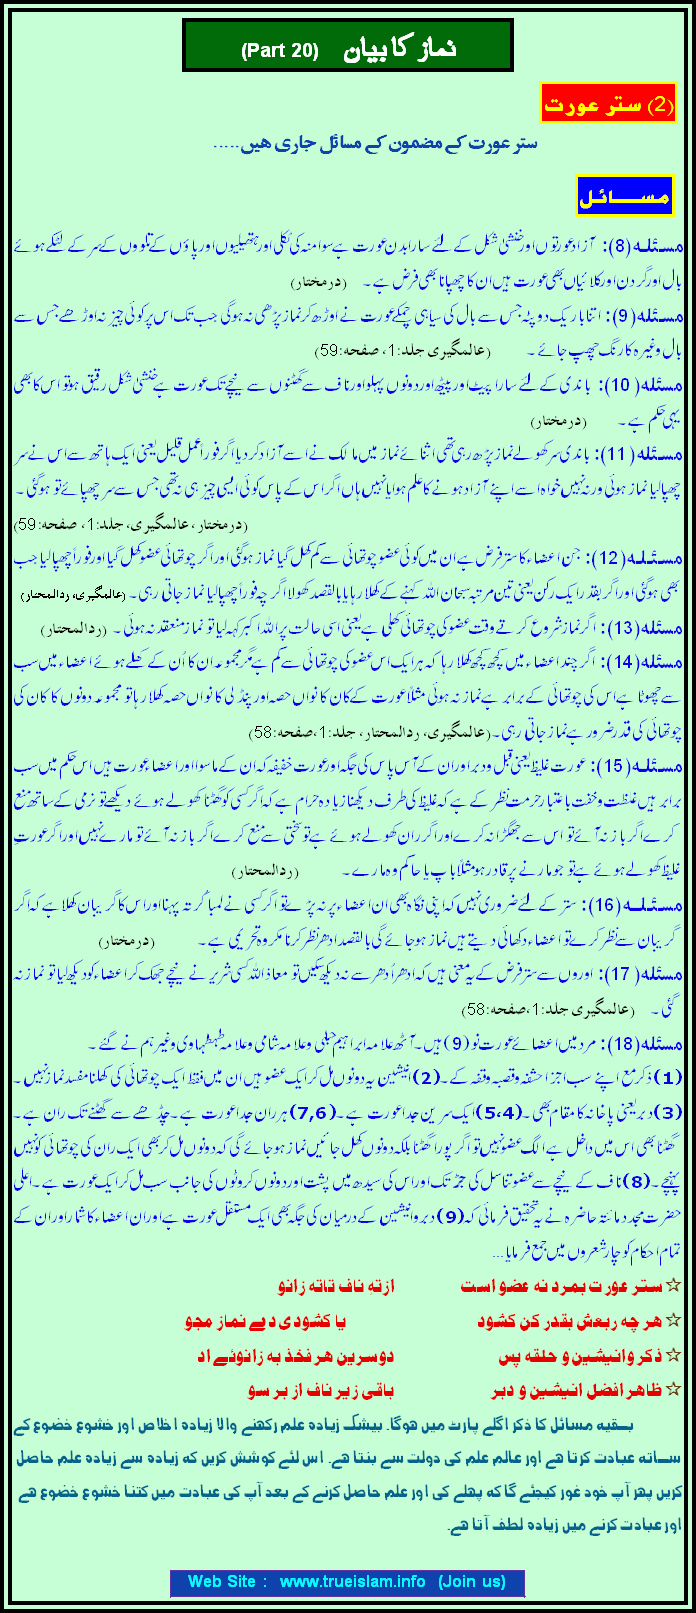 نماز کا بیان (Part 20)
(2) ستر عورت
ستر عورت کے مضمون کے مسائل جاری ھیں.....
مسائل
مسئلہ(8): آزاد عورتوں اور خنثیٰ مشکل کے لئے سارا بدن عورت ہے سوا منہ کی ٹکلی اور ہتھیلیوں اور پاؤں کے تلووں کے سر کے لٹکے ہوئے
بال اور گردن اور کلائیاں بھی عورت ہیں ان کا چھپانا بھی فرض ہے۔ (درمختار)
مسئلہ(9): اتنا باریک دوپٹہ جس سے بال کی سیاہی چمکے عورت نے اوڑھ کر نماز پڑھی نہ ہوگی جب تک اس پر کوئی چیز نہ اوڑھے جس سے
بال وغیرہ کا رنگ چھپ جائے۔ (عالمگیری جلد:1، صفحہ:59)
مسئلہ(10): باندی کے لئے سارا پیٹ اور پیٹھ اور دونوں پہلو اور ناف سے گھٹنوں سے نیچے تک عورت ہے خنثیٰ مشکل رقیق ہو تو اس کا بھی
یہی حکم ہے۔ (درمختار)
مسئلہ(11): باندی سر کھولے نماز پڑھ رہی تھی اثنائے نماز میں مالک نے اسے آزاد کر دیا اگر فوراً عمل قلیل یعنی ایک ہاتھ سے اس نے سر
چھپا لیا نماز ہوئی ورنہ نہیں خواہ اسے اپنے آزاد ہونے کا علم ہوا یا نہیں ہاں اگر اس کے پاس کوئی ایسی چیز ہی نہ تھی جس سے سر چھپائے تو ہوگئی۔
(درمختار، عالمگیری، جلد:1، صفحہ:59)
مسئلہ(12): جن اعضاء کا ستر فرض ہے ان میں کوئی عضو چوتھائی سے کم کھل گیا نماز ہوگئی اور اگر چوتھائی عضو کھل گیا اور فوراً چھپا لیا جب
بھی ہوگئی اور اگر بقدر ایک رکن یعنی تین مرتبہ سبحان اللہ کہنے کے کھلا رہا یا بالقصد کھولا اگرچہ فوراً چھپا لیا نماز جاتی رہی۔ (عالمگیری، ردالمحتار)
مسئلہ(13): اگر نماز شروع کرتے وقت عضو کی چوتھائی کھلی ہے یعنی اسی حالت پر اللہ اکبر کہہ لیا تو نماز منعقد نہ ہوئی۔ (ردالمحتار)
مسئلہ(14): اگر چند اعضاء میں کچھ کچھ کھلا رہا کہ ہر ایک اس عضو کی چوتھائی سے کم ہے مگر مجموعہ ان کا اُن کے کھلے ہوئے اعضاء میں سب
سے چھوٹا ہے اس کی چوتھائی کے برابر ہے نماز نہ ہوئی مثلاً عورت کے کان کا نواں حصہ اور پنڈلی کا نواں حصہ کھلا رہا تو مجموعہ دونوں کا کان کی
چوتھائی کی قدر ضرور ہے نماز جاتی رہی۔(عالمگیری، ردالمحتار، جلد:1،صفحہ:58)
مسئلہ(15): عورت غلیظ یعنی قبل و دبر اور ان کے آس پاس کی جگہ اور عورت خفیفہ کہ ان کے ماسوا اور اعضاء عورت ہیں اس حکم میں سب
برابر ہیں غلظت و خفت باعتبار حرمت نظر کے ہے کہ غلیظ کی طرف دیکھنا زیادہ حرام ہے کہ اگر کسی کو گھٹنا کھولے ہوئے دیکھے تو نرمی کے ساتھ منع
کرے اگر باز نہ آئے تو اس سے جھگڑا نہ کرے اور اگر ران کھولے ہوئے ہے تو سختی سے منع کرے اگر باز نہ آئے تو مارے نہیں اور اگر عورت
غلیظ کھولے ہوئے ہے تو جو مارنے پر قادر ہو مثلاً باپ یا حاکم وہ مارے۔ (ردالمحتار)
مسئلہ(16): ستر کے لئے ضروری نہیں کہ اپنی نگاہ بھی ان اعضاء پر نہ پڑے تو اگر کسی نے لمبا کُرتہ پہنا اور اس کا گریبان کھلا ہے کہ اگر
گریبان سے نظر کرے تو اعضاء دکھائی دیتے ہیں نماز ہو جائے گی بالقصد ادھر نظر کرنا مکروہ تحریمی ہے۔ (درمختار)
مسئلہ(17): اوروں سے ستر فرض کے یہ معنی ہیں کہ ادھر اُدھر سے نہ دیکھ سکیں تو معاذ اللہ کسی شریر نے نیچے جھک کر اعضاء کو دیکھ لیا تو نماز نہ
گئی۔ (عالمگیری جلد:1،صفحہ:58)
مسئلہ(18): مرد میں اعضائے عورت نو(9) ہیں۔ آٹھ علامہ ابراہیم حلبی و علامہ شامی و علامہ طحطاوی وغیرہم نے گنے۔
(1) ذکر مع اپنے سب اجزا حشفہ و قصبہ و قلفہ کے۔(2) انیثین یہ دونوں مل کر ایک عضو ہیں ان میں فقط ایک چوتھائی کی کھلنا مفسد نماز نہیں۔
(3) دبر یعنی پاخانہ کا مقام بھی۔(5،4) ایک سرین جدا عورت ہے۔(7,6) ہر ران جدا عورت ہے۔ چڈھے سے گھٹنے تک ران ہے۔
گھٹنا بھی اس میں داخل ہے الگ عضو نہیں تو اگر پورا گھٹنا بلکہ دونوں کھل جائیں نماز ہو جائے گی کہ دونوں مل کر بھی ایک ران کی چوتھائی کو نہیں
پہنچے۔(8) ناف کے نیچے سے عضو تناسل کی جڑ تک اور اس کی سیدھ میں پشت اور دونوں کروٹوں کی جانب سب مل کر ایک عورت ہے۔ اعلی
حضرت مجدد مائتہ حاضرہ نے یہ تحقیق فرمائی کہ (9) دبر و انیثین کے درمیان کی جگہ بھی ایک مستقل عورت ہے اور ان اعضاء کا شمار اور ان کے
تمام احکام کو چار شعروں میں جمع فرمایا...
☆ ستر عورت بمرد نہ عضو است ازتہِ ناف تاتہ زانو
☆ ھر چہ ربعش بقدر کن کشود یا کشودی دے نماز مجو
☆ ذکر وانیشین و حلقہ پس دوسرین ھر فخذ بہ زانوئے اد
☆ ظاھر افضل انیشین و دبر باقی زیر ناف از ہر سو
بقیہ مسائل کا ذکر اگلے پارٹ میں ھوگا. بیشک زیادہ علم رکھنے والا زیادہ اخلاص اور خشوع خضوع کے
ساتھ عبادت کرتا ھے اور عالم علم کی دولت سے بنتا ھے. اس لئے کوشش کریں کہ زیادہ سے زیادہ علم حاصل
کریں پھر آپ خود غور کیجئے گا کہ پھلے کی اور علم حاصل کرنے کے بعد آپ کی عبادت میں کتنا خشوع خضوع ھے
اور عبادت کرنے میں زیادہ لطف آتا ھے.
Web Site : www.trueislam.info (Join us)